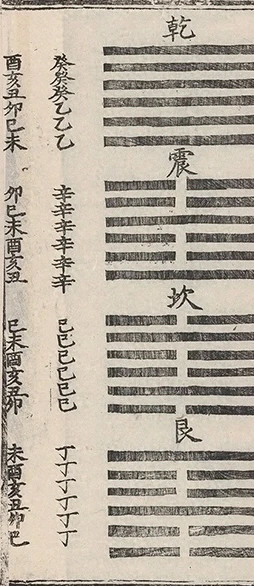 乾
癸癸癸乙乙乙
酉亥丑卯巳未
震
辛辛辛辛辛辛
卯巳未酉亥丑
坎
己己己己己己
巳未酉亥丑卯
艮
丁丁丁丁丁丁
未酉亥丑卯巳